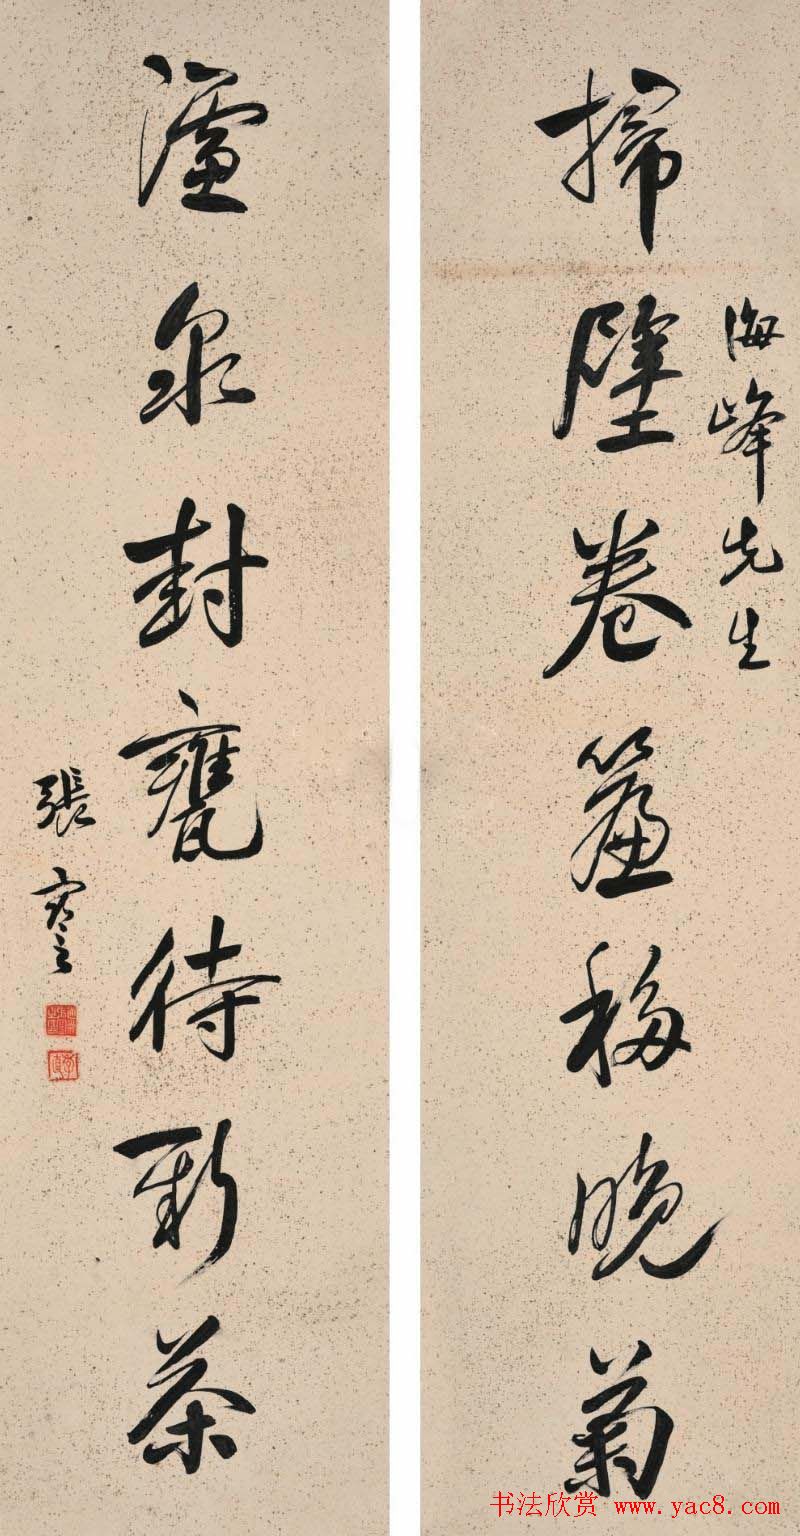 掃壁卷簾移晚菊
海峰先生
濾泉封甕待新茶
張謇
书法欣赏 www.yac8.com